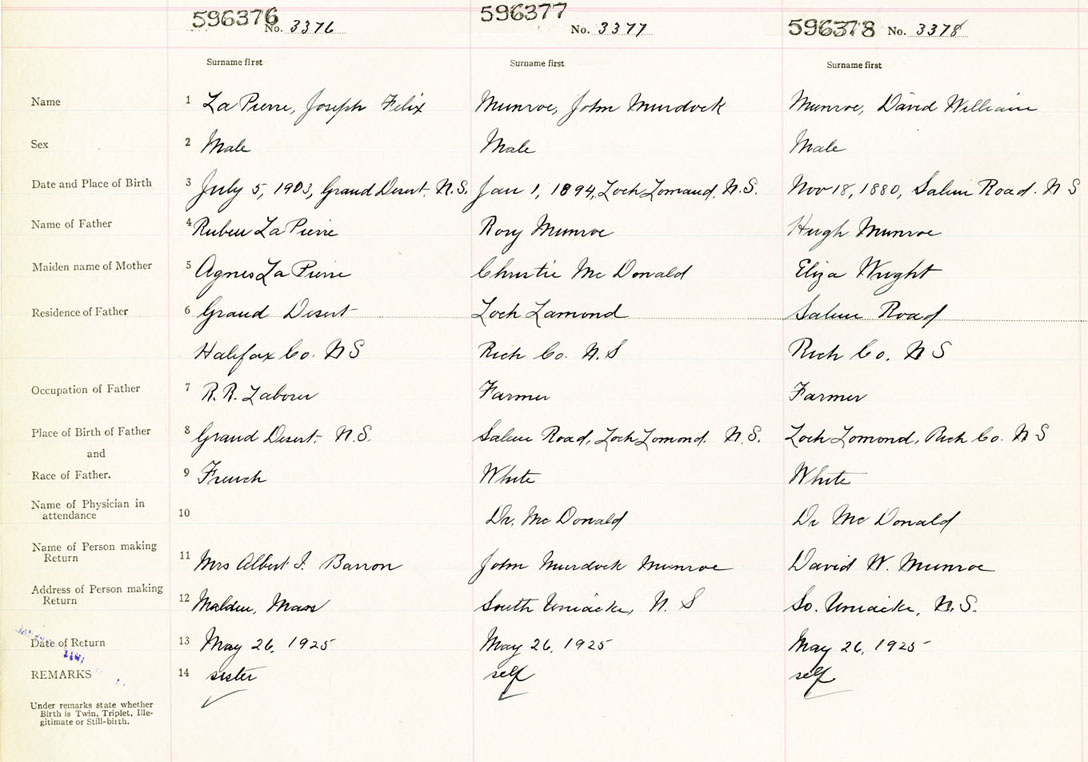 596376 No. 3376 596377 No. 3377 596378 No. 3378
Surname first Surname first Surname first
Name 1 La Pierre, Joseph Felix Munroe, John Murdock Munroe, David William
Sex 2 Male Male Male
Date and Place of Birth 3 July 5, 1903, Grand Desert. N.S. Jan 1, 1894, Loch Lomand. N.S. Nov 18, 1880, Salem Road. N S
Name of Father 4 Ruben La Pierre Rory Munroe Hugh Munroe
Maiden name of Mother 5 Agnes La Pierre Christie Mc Donald Eliza Wright
Residence of Father 6 Grand Desert Loch Lamond Salem Road
Halifax Co. N S Rich Co. N. S Rich Co. N S
Occupation of Father 7 R. R. Laborer Farmer Farmer
Place of Birth of Father 8 Grand Desert- N.S. Salem Road, Loch Lomond. N.S. Loch Lomond, Rich Co. N S
and
Race of Father. 9 French White White
Name of Physician in
attendance 10 Dr. Mc Donald Dr Mc Donald
Name of Person making
Return 11 Mrs Albert J. Barron John Murdock Munroe David W. Munroe
Address of Person making
Return 12 Malden, Mass South Uniacke, N. S So. Uniacke, N.S.
Date of Return 13 May 26, 1925 May 26, 1925 May 26, 1925
REMARKS 14 sister self self
Under remarks state whether
Birth is Twin, Triplet, Ille-
gitimate or Still-birth.